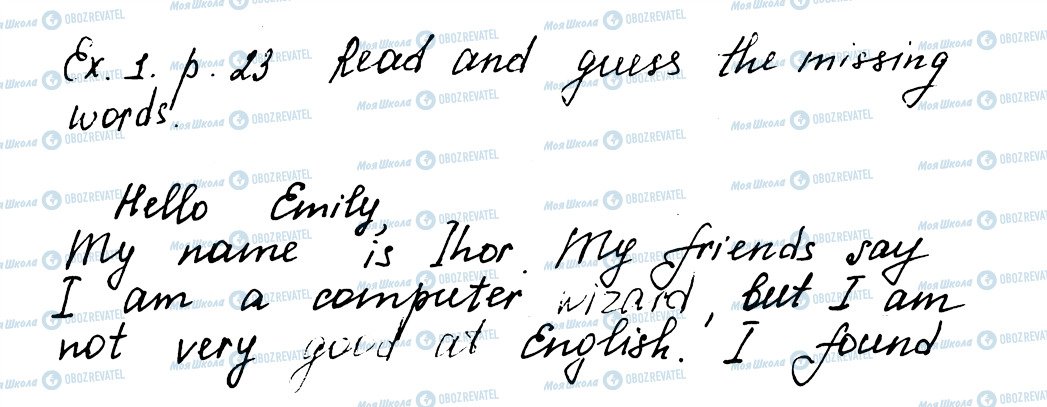 Ex. 1. p. 23 Read and guess the missing
words.
Hello Emily,
My name is Ihor. My friends say
I am a computer wizard, but I am
not very good at English. I found